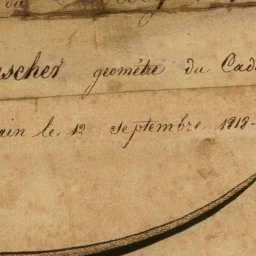 scher geométre du Cad
ain le 12 Septembre 1818-